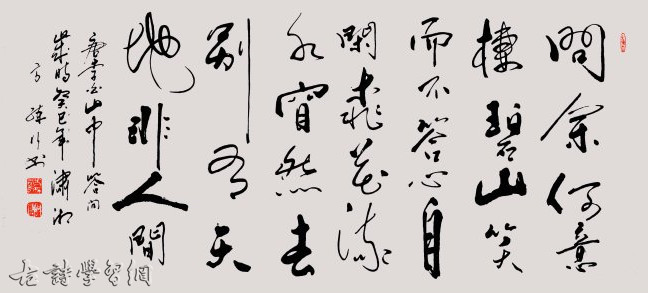 問余何意
棲碧山笑
而不答心自
閑桃花流
水窅然去
別有天
地非人間
唐李白山中答問
歲時癸巳年瀟湘
學習網